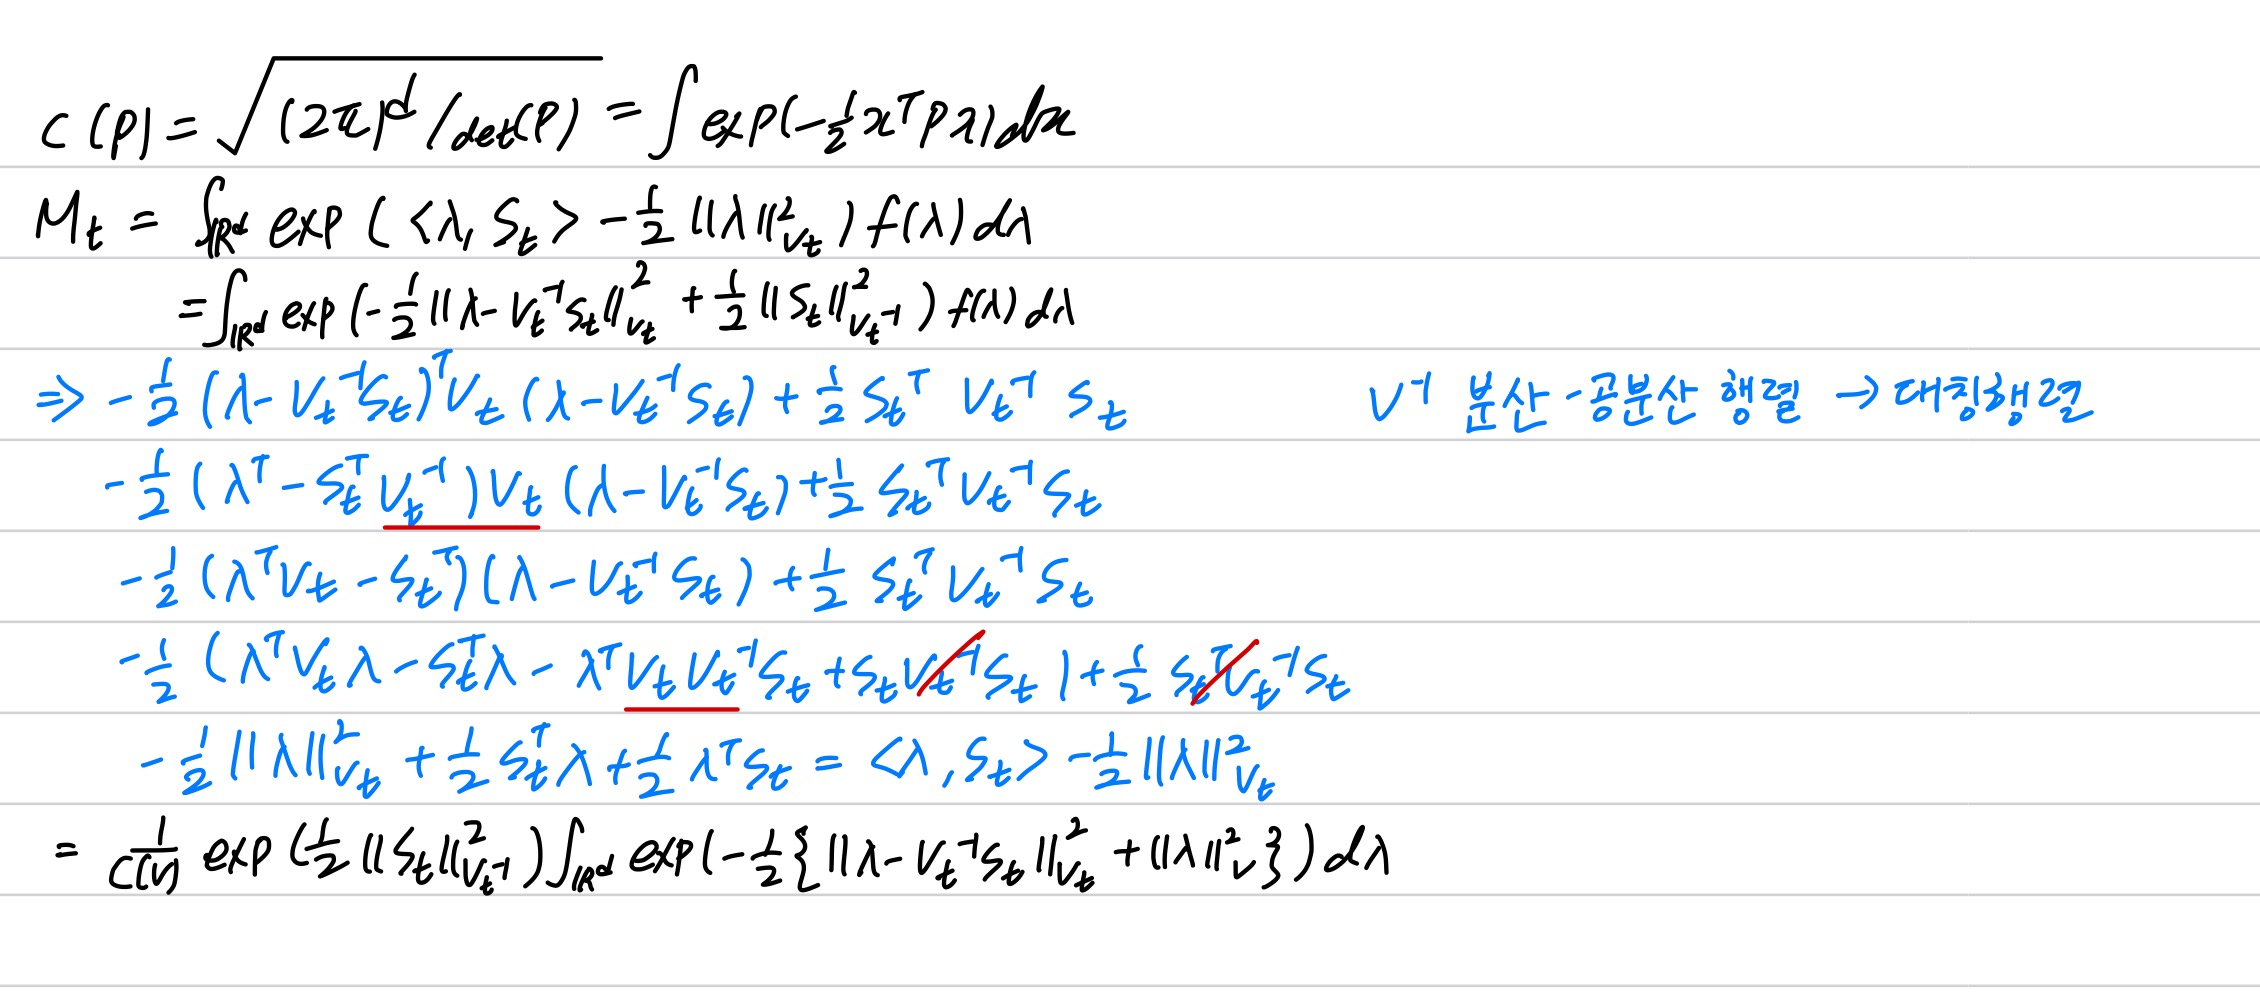 C(P) = √((2π)^d / det(P)) = ∫ exp(-½ x^T P x) dx
M_t = ∫_{ℝ^d} exp(<λ, S_t> - ½ ||λ||²_{V_t}) f(λ) dλ
= ∫_{ℝ^d} exp(-½ ||λ - V_t^{-1} S_t||²_{V_t} + ½ ||S_t||²_{V_t^{-1}}) f(λ) dλ
⇒ -½ (λ - V_t^{-1} S_t)^T V_t (λ - V_t^{-1} S_t) + ½ S_t^T V_t^{-1} S_t V^{-1} 분산-공분산 행렬 → 대칭행렬
-½ (λ^T - S_t^T V_t^{-1}) V_t (λ - V_t^{-1} S_t) + ½ S_t^T V_t^{-1} S_t
-½ (λ^T V_t - S_t^T)(λ - V_t^{-1} S_t) + ½ S_t^T V_t^{-1} S_t
-½ (λ^T V_t λ - S_t^T λ - λ^T V_t V_t^{-1} S_t + S_t V_t^{-1} S_t) + ½ S_t^T V_t^{-1} S_t
-½ ||λ||²_{V_t} + ½ S_t^T λ + ½ λ^T S_t = <λ, S_t> - ½ ||λ||²_{V_t}
= 1/C(V) exp(½ ||S_t||²_{V_t^{-1}}) ∫_{ℝ^d} exp(-½ {||λ - V_t^{-1} S_t||²_{V_t} + ||λ||²_V}) dλ